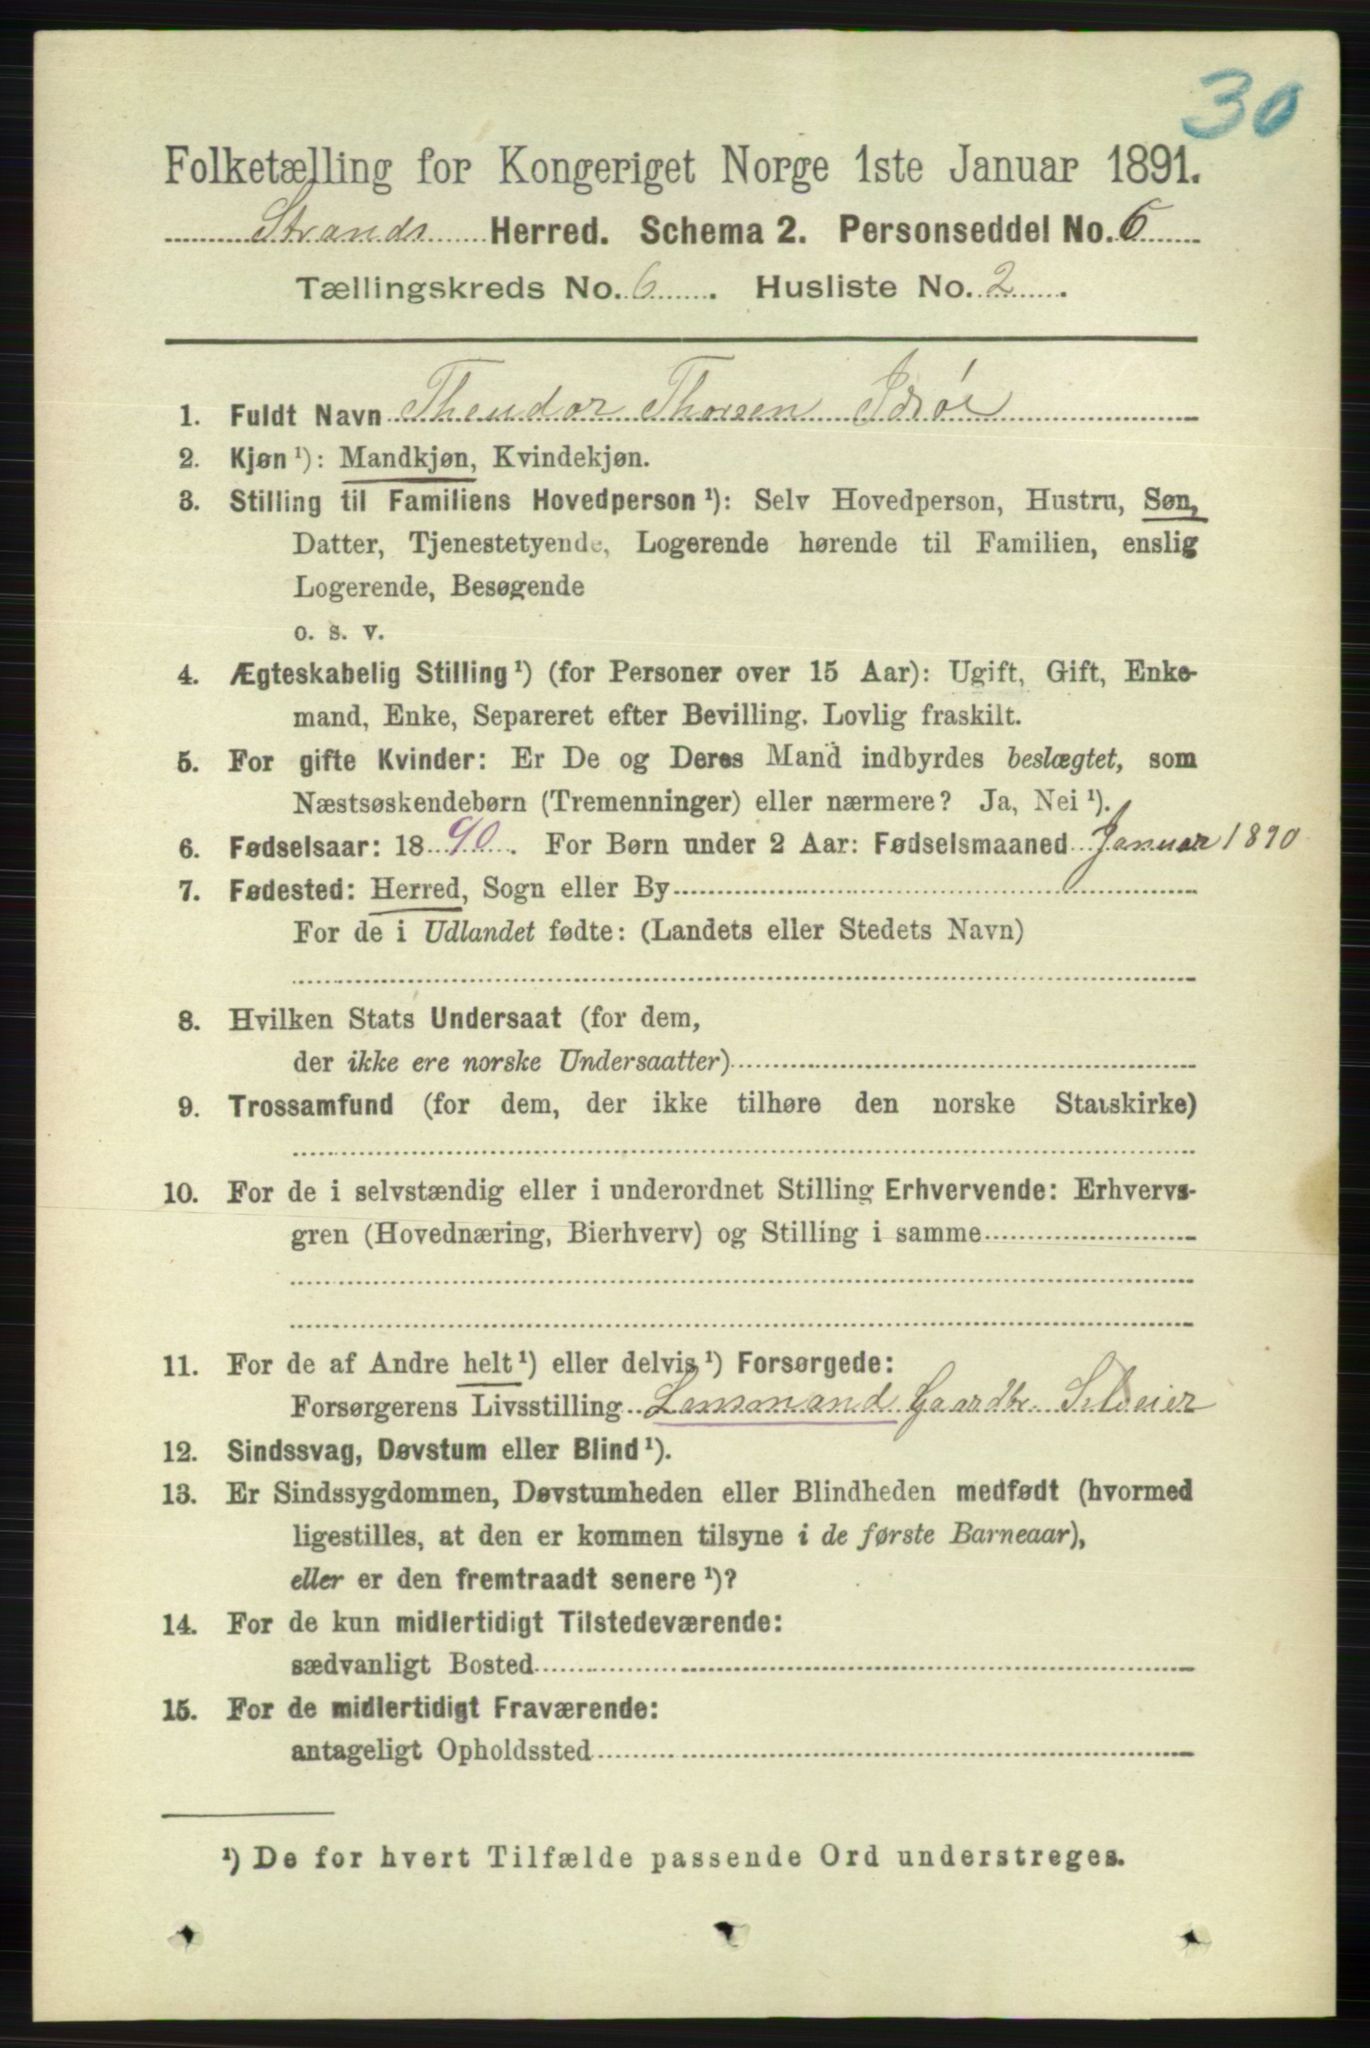 30
Folketælling for Kongeriget Norge 1ste Januar 1891.
Strands Herred. Schema 2. Personseddel No. 6
Tællingskreds No. 6. Husliste No. 2.
1. Fuldt Navn Theodor Thorsen Idsøe
2. Kjøn ¹): Mandkjøn, Kvindekjøn.
3. Stilling til Familiens Hovedperson ¹): Selv Hovedperson, Hustru, Søn,
Datter, Tjenestetyende, Logerende hørende til Familien, enslig
Logerende, Besøgende
o. s. v.
4. Ægteskabelig Stilling ¹) (for Personer over 15 Aar): Ugift, Gift, Enke-
mand, Enke, Separeret efter Bevilling. Lovlig fraskilt.
5. For gifte Kvinder: Er De og Deres Mand indbyrdes beslægtet, som
Næstsøskendebørn (Tremenninger) eller nærmere? Ja, Nei ¹).
6. Fødselsaar: 1890. For Børn under 2 Aar: Fødselsmaaned Januar 1890
7. Fødested: Herred, Sogn eller By
For de i Udlandet fødte: (Landets eller Stedets Navn)
8. Hvilken Stats Undersaat (for dem,
der ikke ere norske Undersaatter)
9. Trossamfund (for dem, der ikke tilhøre den norske Statskirke)
10. For de i selvstændig eller i underordnet Stilling Erhvervende: Erhvervs-
gren (Hovednæring, Bierhverv) og Stilling i samme
11. For de af Andre helt ¹) eller delvis ¹) Forsørgede:
Forsørgerens Livsstilling Lensmand Gaardbr. Selveier
12. Sindssvag, Døvstum eller Blind ¹).
13. Er Sindssygdommen, Døvstumheden eller Blindheden medfødt (hvormed
ligestilles, at den er kommen tilsyne i de første Barneaar),
eller er den fremtraadt senere ¹)?
14. For de kun midlertidigt Tilstedeværende:
sædvanligt Bosted
15. For de midlertidigt Fraværende:
antageligt Opholdssted
¹) De for hvert Tilfælde passende Ord understreges.